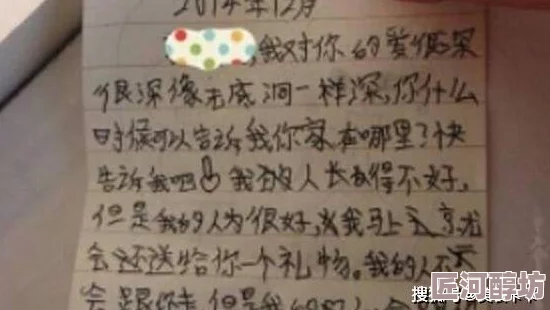 2014年12月
,我对你的爱很深
很深像无底洞一样深,你什么
时候可以告诉我你家在哪里了快
告诉我吧 我的人长得不好,
但是我的人为很好,我马上
会还送给你一个礼物。我的人不
会跟你走,但是我的
搜狐号
匠河醇坊